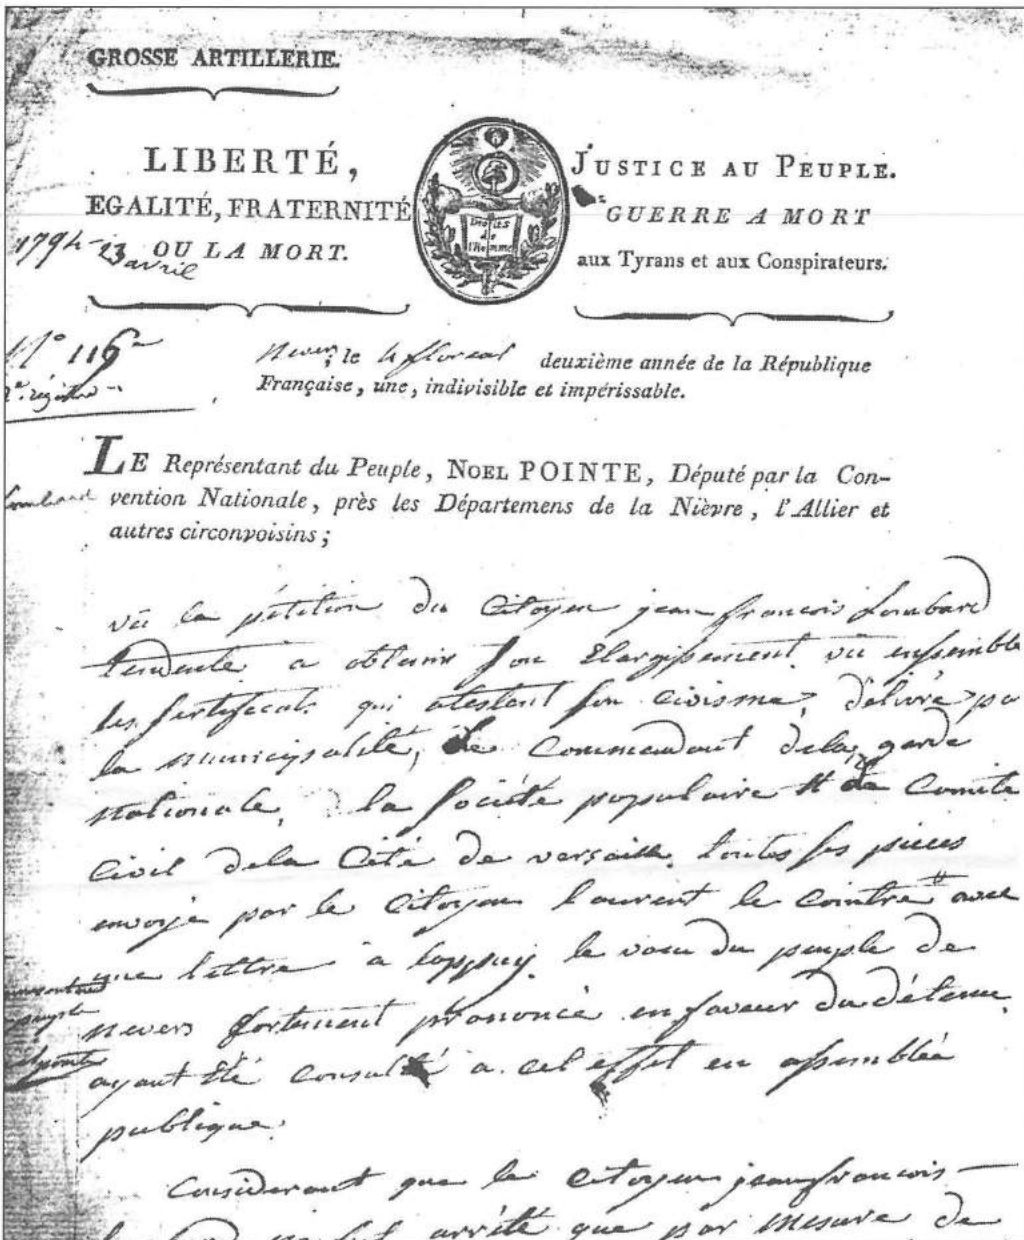 GROSSE ARTILLERIE.
LIBERTÉ,
EGALITÉ, FRATERNITÉ
OU LA MORT.
1794 - 23
avril
Droits
de
l'Homme
JUSTICE AU PEUPLE.
GUERRE A MORT
aux Tyrans et aux Conspirateurs.
N° 116
Nevers, le 4 floreal deuxième année de la République
Française, une, indivisible et impérissable.
LE Représentant du Peuple, NOEL POINTE, Député par la Con-
vention Nationale, près les Départemens de la Nièvre, l'Allier et
autres circonvoisins;
Lombard
vû la pétition du Citoyen jean francois Lombard
tendente a obtenir son Elargissement. vû ensemble
les sertificats qui atestent son civisme, délivré par
la municipalité, le Commendant dela garde
nationale, la société populaire et le Comité
Civil dela Cité de versaille. toutes ses pieces
envoyé par le Citoyen laurent le Cointre avec
une lettre a lappuy. le voeu du peuple de
nevers fortement prononcé en faveur du détenu.
ayant été consulté a cet effet en assemblée
publique.
Considerant que le Citoyen jean francois
arrêté que par mesure de